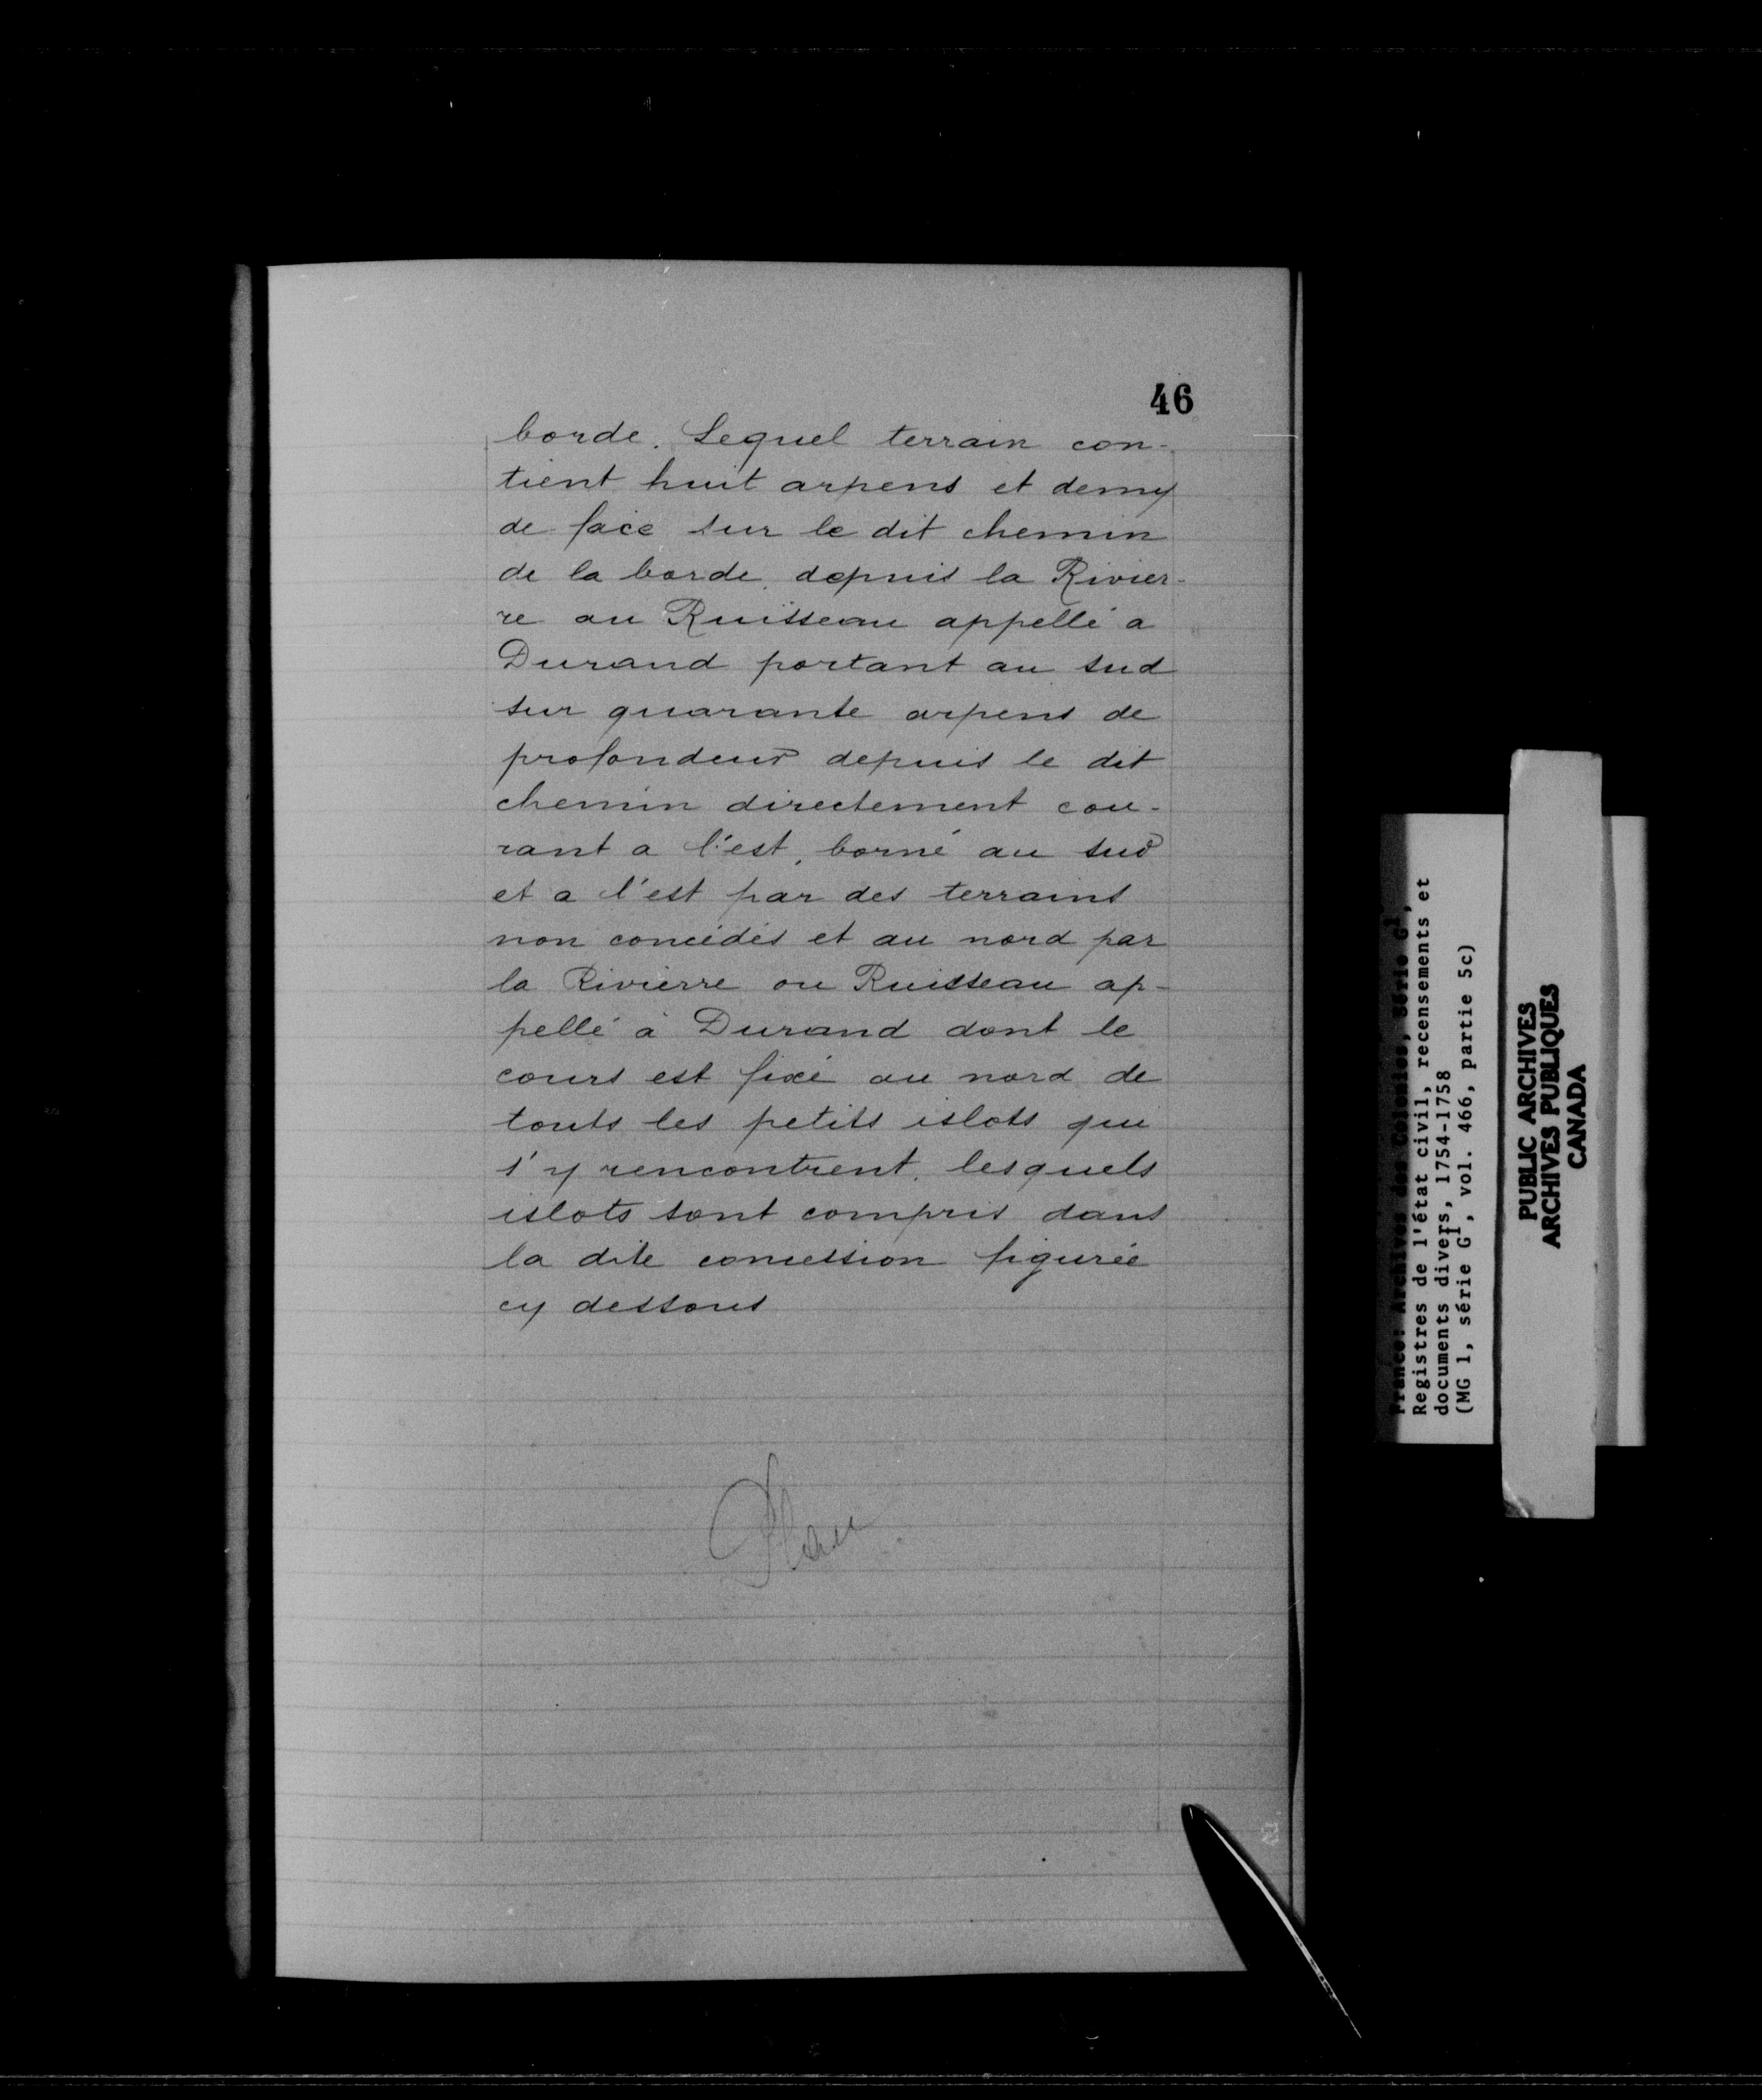 46
borde. Lequel terrain con-
tient huit arpens et demy
de face sur le dit chemin
de la borde depuis la Rivier-
re ou Ruisseau appellé a
Durand portant au sud
sur quarante arpens de
profondeur depuis le dit
chemin directement cou-
rant a l'est, borné au sud
et a l'est par des terrains
non concédés et au nord par
la Rivierre ou Ruisseau ap-
pellé à Durand dont le
cours est fixé au nord de
touts les petits islots qui
s'y rencontrent, lesquels
islots sont compris dans
la dite concession figurée
cy dessous
Plan
France: Archives des Colonies, Série G1,
Registres de l'état civil, recensements et
documents divers, 1754-1758
(MG 1, série G1, vol. 466, partie 5c)
PUBLIC ARCHIVES
ARCHIVES PUBLIQUES
CANADA